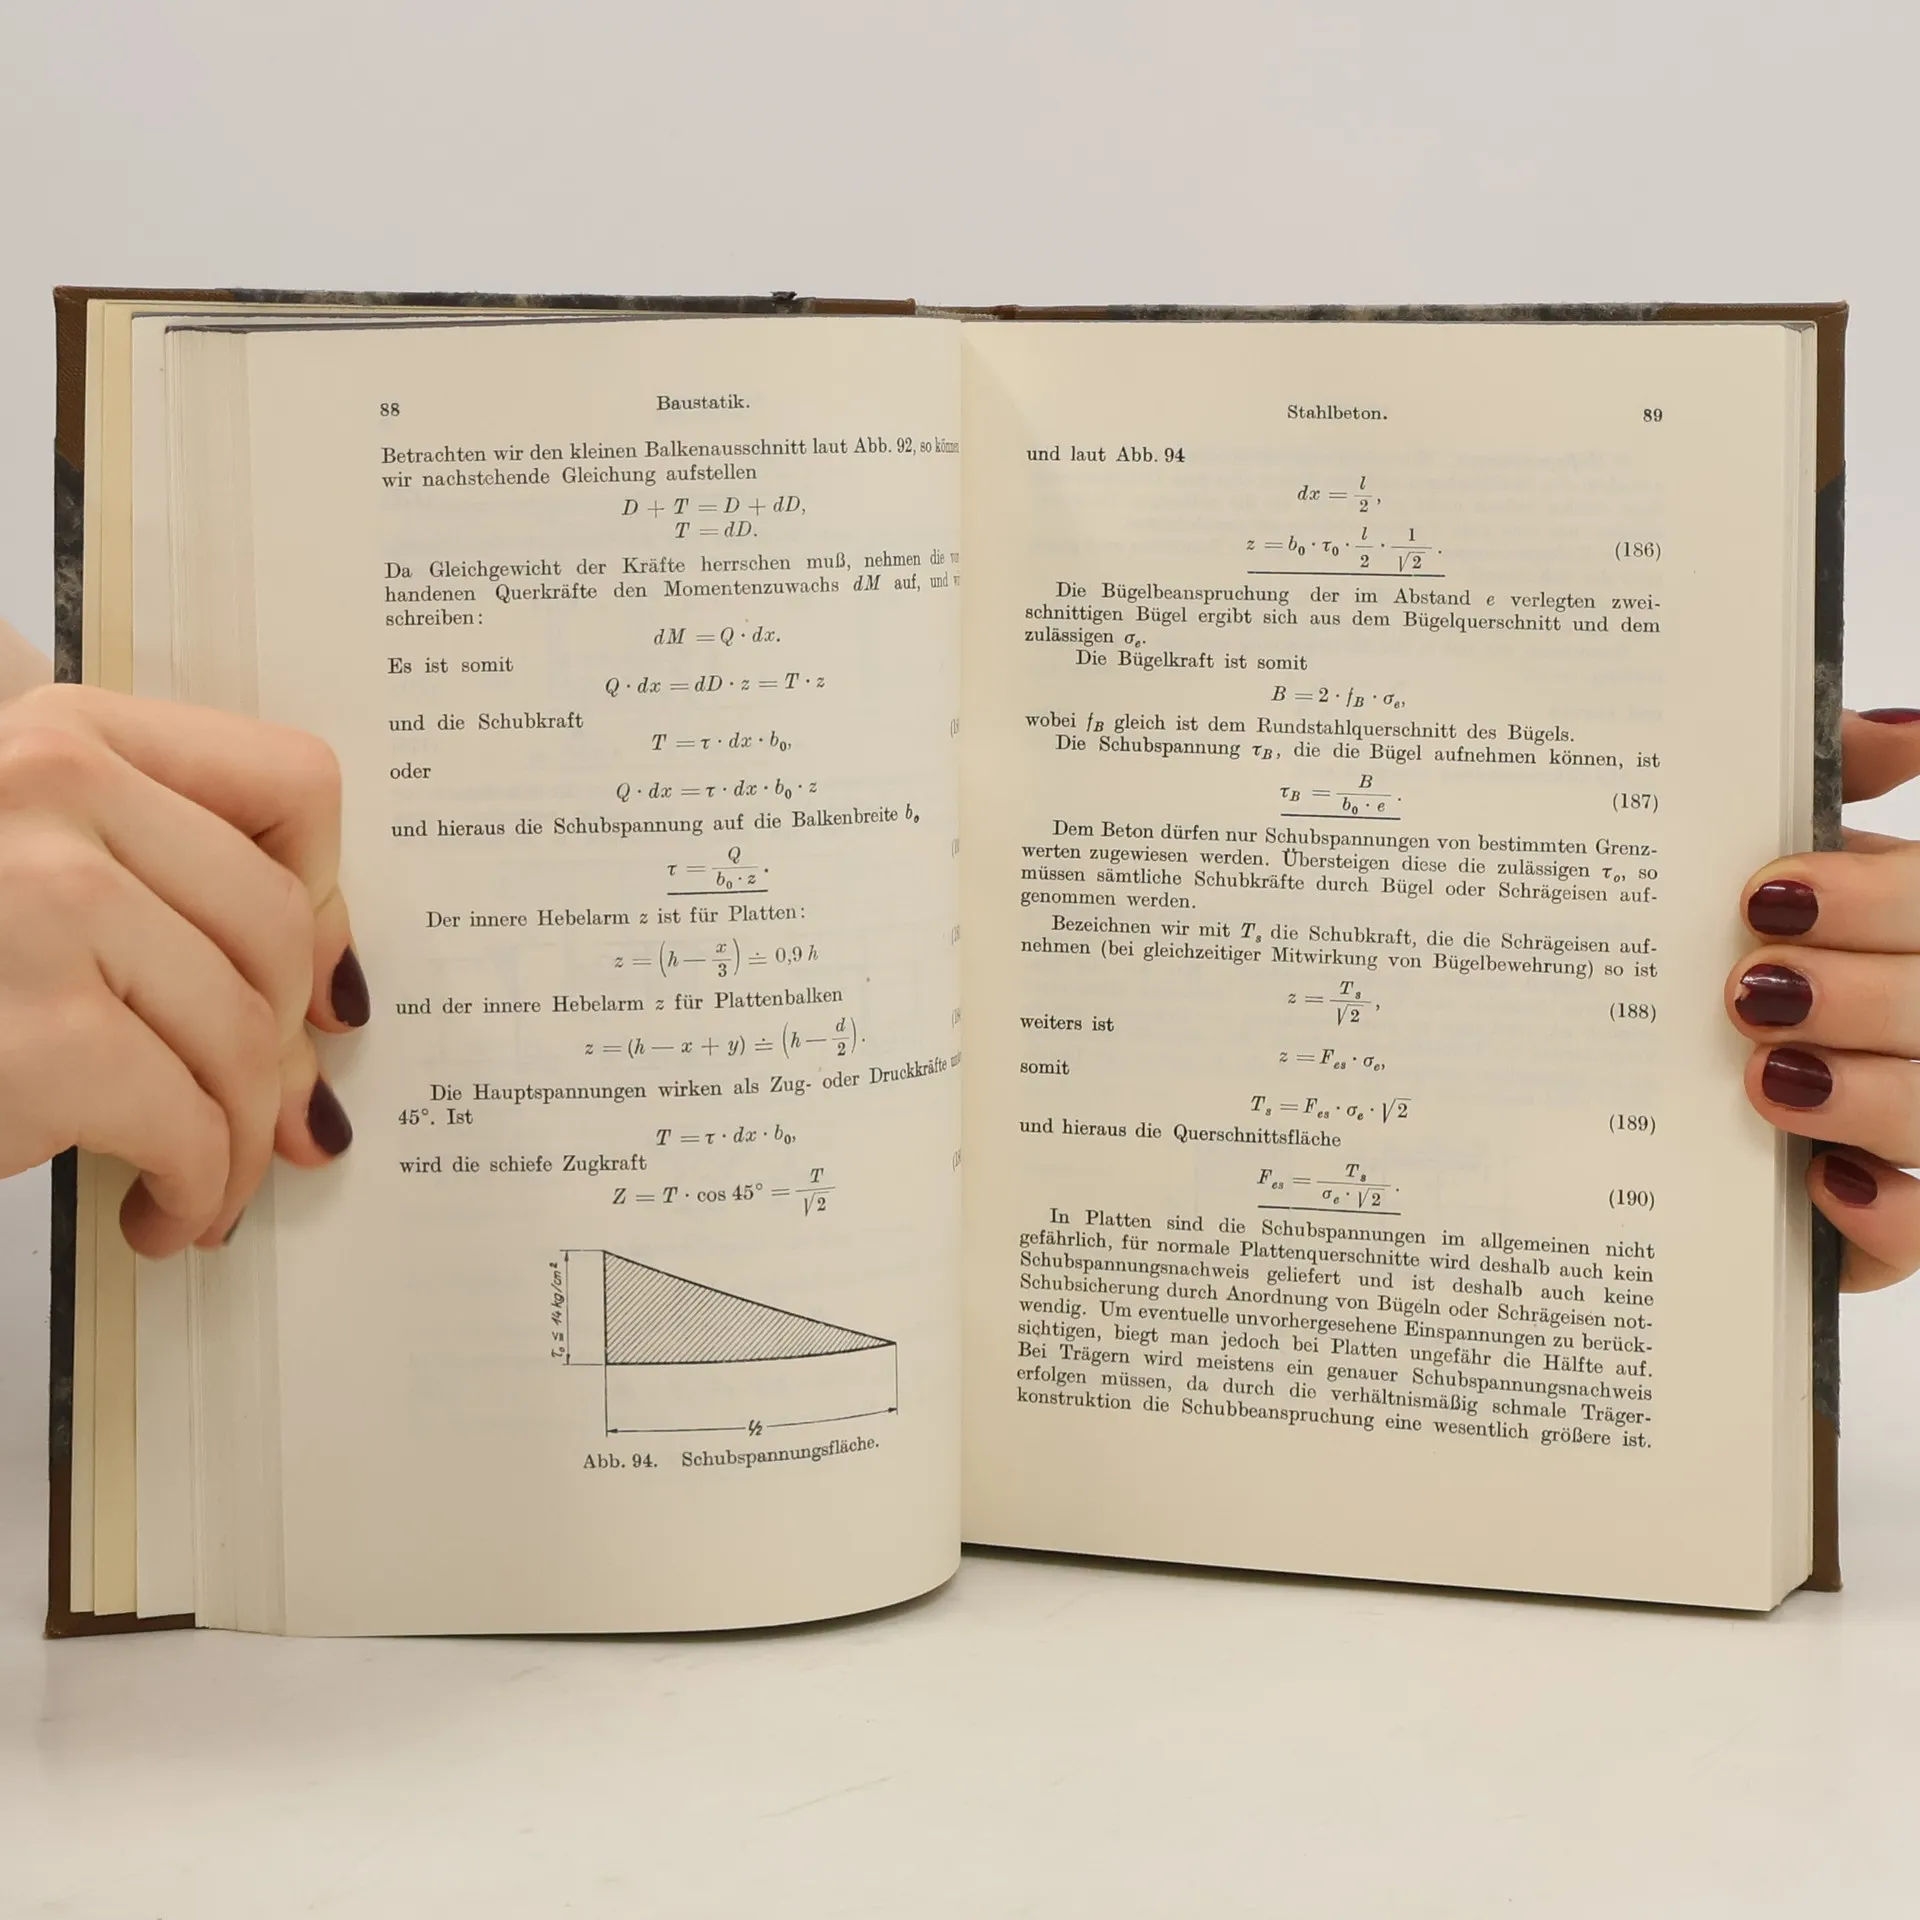 88
Baustatik.
Betrachten wir den kleinen Balkenausschnitt laut Abb. 92, so
wir nachstehende Gleichung aufstellen
D + T = D + dD,
T = dD.
Da Gleichgewicht der Kräfte herrschen muß, nehmen die
handenen Querkräfte den Momentenzuwachs dM auf, und
schreiben:
dM = Q · dx.
Es ist somit
Q · dx = dD · z = T · z
und die Schubkraft
T = τ · dx · b₀,
oder
Q · dx = τ · dx · b₀ · z
und hieraus die Schubspannung auf die Balkenbreite b₀
τ = Q / (b₀ · z).
Der innere Hebelarm z ist für Platten:
z = (h — x/3) ≐ 0,9 h
und der innere Hebelarm z für Plattenbalken
z = (h — x + y) ≐ (h — d/2).
Die Hauptspannungen wirken als Zug- oder Druckkräfte
45°. Ist
T = τ · dx · b₀,
wird die schiefe Zugkraft
Z = T · cos 45° = T/√2
τ₀ ≦ 14 kg/cm²
l/2
Abb. 94. Schubspannungsfläche.
Stahlbeton.
89
und laut Abb. 94
dx = l/2,
z = b₀ · τ₀ · l/2 · 1/√2. (186)
Die Bügelbeanspruchung der im Abstand e verlegten zwei-
schnittigen Bügel ergibt sich aus dem Bügelquerschnitt und dem
zulässigen σₑ.
Die Bügelkraft ist somit
B = 2 · f_B · σₑ,
wobei f_B gleich ist dem Rundstahlquerschnitt des Bügels.
Die Schubspannung τ_B, die die Bügel aufnehmen können, ist
τ_B = B / (b₀ · e). (187)
Dem Beton dürfen nur Schubspannungen von bestimmten Grenz-
werten zugewiesen werden. Übersteigen diese die zulässigen τ₀, so
müssen sämtliche Schubkräfte durch Bügel oder Schrägeisen auf-
genommen werden.
Bezeichnen wir mit Tₛ die Schubkraft, die die Schrägeisen auf-
nehmen (bei gleichzeitiger Mitwirkung von Bügelbewehrung) so ist
z = Tₛ/√2, (188)
weiters ist
z = Fₑₛ · σₑ,
somit
Tₛ = Fₑₛ · σₑ · √2 (189)
und hieraus die Querschnittsfläche
Fₑₛ = Tₛ / (σₑ · √2). (190)
In Platten sind die Schubspannungen im allgemeinen nicht
gefährlich, für normale Plattenquerschnitte wird deshalb auch kein
Schubspannungsnachweis geliefert und ist deshalb auch keine
Schubsicherung durch Anordnung von Bügeln oder Schrägeisen not-
wendig. Um eventuelle unvorhergesehene Einspannungen zu berück-
sichtigen, biegt man jedoch bei Platten ungefähr die Hälfte auf.
Bei Trägern wird meistens ein genauer Schubspannungsnachweis
erfolgen müssen, da durch die verhältnismäßig schmale Träger-
konstruktion die Schubbeanspruchung eine wesentlich größere ist.